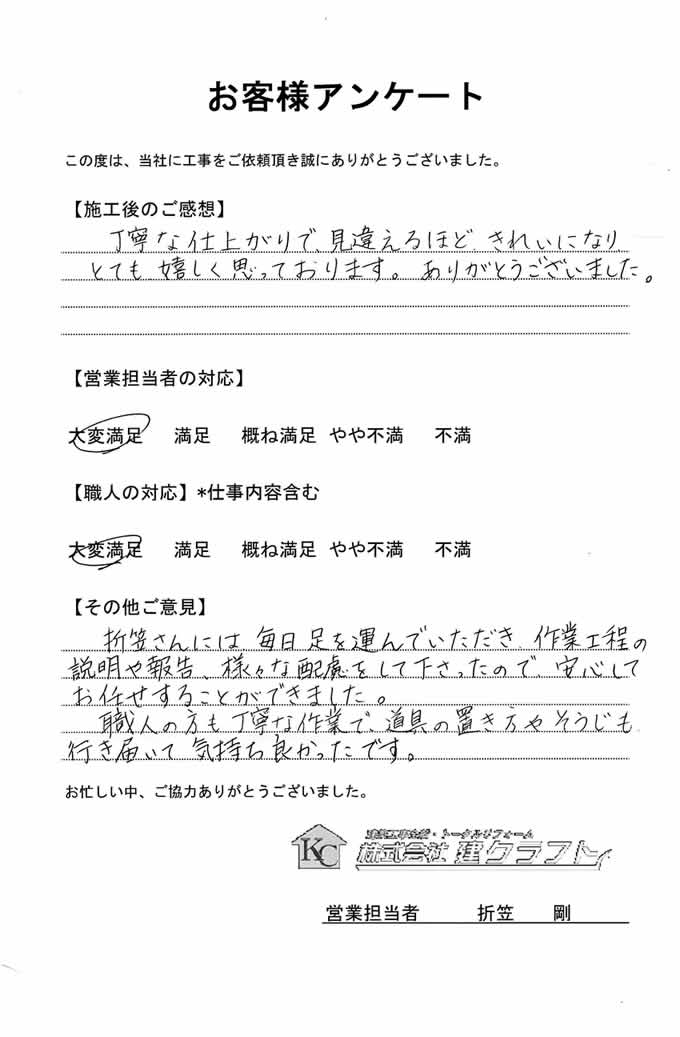 お客様アンケート
この度は、当社に工事をご依頼頂き誠にありがとうございました。
【施工後のご感想】
丁寧な仕上がりで、見違えるほど、きれいになり
とても嬉しく思っております。ありがとうございました。
【営業担当者の対応】
大変満足 満足 概ね満足 やや不満 不満
【職人の対応】*仕事内容含む
大変満足 満足 概ね満足 やや不満 不満
【その他ご意見】
折笠さんには、毎日足を運んでいただき、作業工程の
説明や報告、様々な配慮をして下さったので、安心して
お任せすることができました。
職人の方も丁寧な作業で、道具の置き方やそうじも
行き届いて気持ち良かったです。
お忙しい中、ご協力ありがとうございました。
KC
建築工事全般・トータルリフォーム
株式会社 建クラフト
営業担当者 折笠 剛